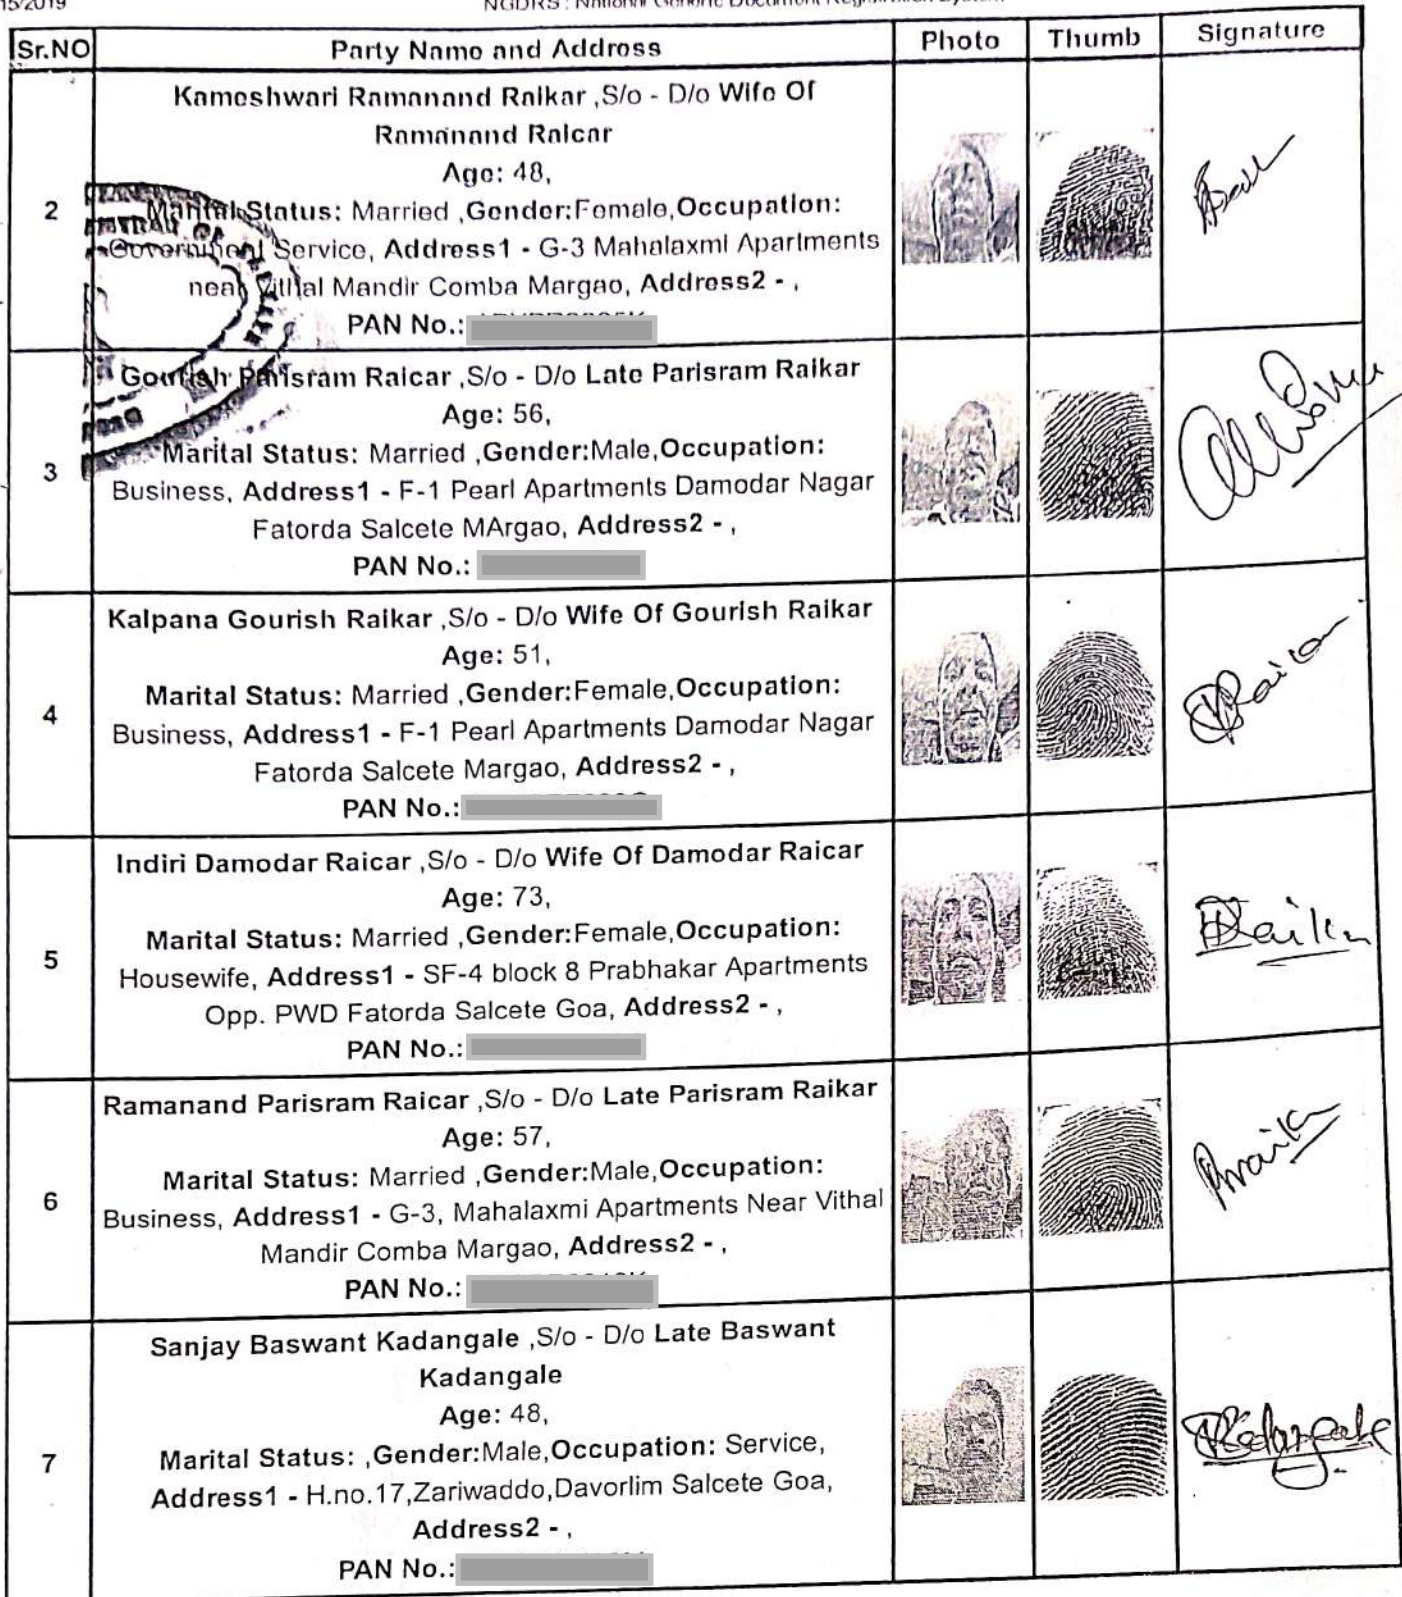 15/2019
NGDRS : National Generic Document Registration System
Sr.NO Party Name and Address Photo Thumb Signature
2
Kameshwari Ramanand Raikar ,S/o - D/o Wife Of
Ramanand Raicar
Age: 48,
Marital Status: Married ,Gender:Female,Occupation:
Government Service, Address1 - G-3 Mahalaxmi Apartments
near Vithal Mandir Comba Margao, Address2 - ,
PAN No.:
3
Gourish Parisram Raicar ,S/o - D/o Late Parisram Raikar
Age: 56,
Marital Status: Married ,Gender:Male,Occupation:
Business, Address1 - F-1 Pearl Apartments Damodar Nagar
Fatorda Salcete MArgao, Address2 - ,
PAN No.:
4
Kalpana Gourish Raikar ,S/o - D/o Wife Of Gourish Raikar
Age: 51,
Marital Status: Married ,Gender:Female,Occupation:
Business, Address1 - F-1 Pearl Apartments Damodar Nagar
Fatorda Salcete Margao, Address2 - ,
PAN No.:
5
Indiri Damodar Raicar ,S/o - D/o Wife Of Damodar Raicar
Age: 73,
Marital Status: Married ,Gender:Female,Occupation:
Housewife, Address1 - SF-4 block 8 Prabhakar Apartments
Opp. PWD Fatorda Salcete Goa, Address2 - ,
PAN No.:
6
Ramanand Parisram Raicar ,S/o - D/o Late Parisram Raikar
Age: 57,
Marital Status: Married ,Gender:Male,Occupation:
Business, Address1 - G-3, Mahalaxmi Apartments Near Vithal
Mandir Comba Margao, Address2 - ,
PAN No.:
7
Sanjay Baswant Kadangale ,S/o - D/o Late Baswant
Kadangale
Age: 48,
Marital Status: ,Gender:Male,Occupation: Service,
Address1 - H.no.17,Zariwaddo,Davorlim Salcete Goa,
Address2 - ,
PAN No.: